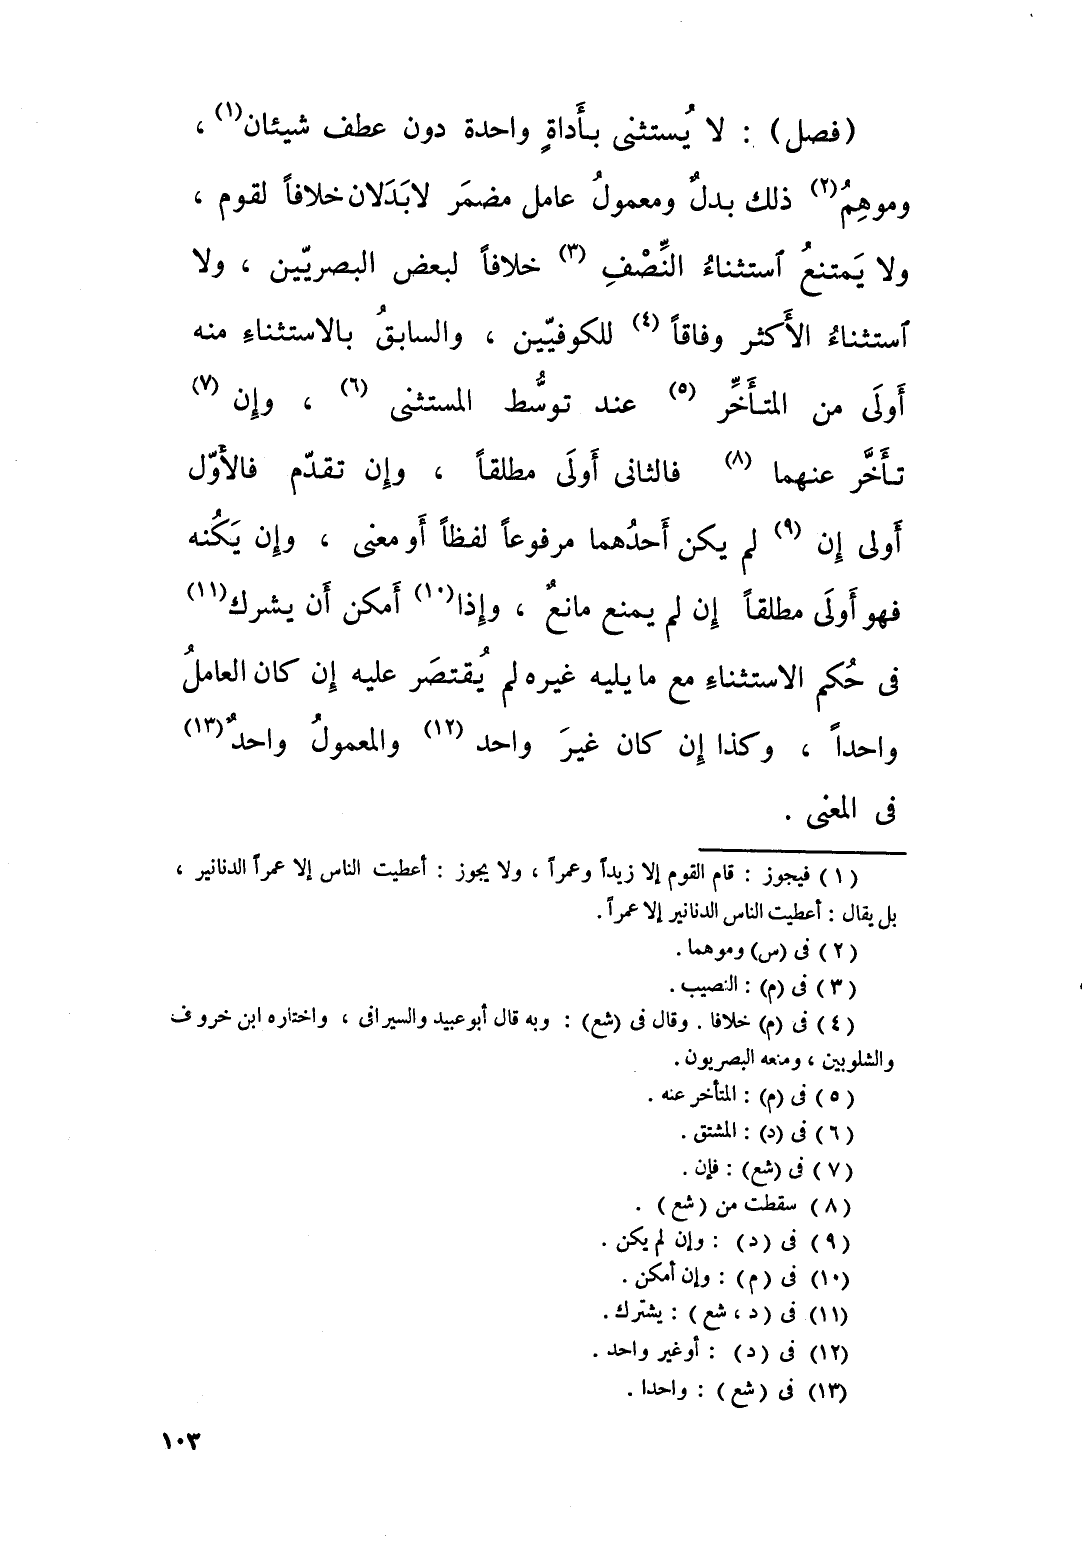 (فصل) : لا يُستثنى بأَداةٍ واحدة دون عطف شيئان(١) ،
وموهِمُ(٢) ذلك بدلٌ ومعمولُ عامل مضمَر لابَدَلان خلافاً لقوم ،
ولا يَمتنعُ ٱستثناءُ النِّصْفِ (٣) خلافاً لبعض البصريّين ، ولا
ٱستثناءُ الأَكثر وفاقاً (٤) للكوفيّين ، والسابقُ بالاستثناءِ منه
أَولَى من المتأَخِّر (٥) عند توسُّط المستثنى (٦) ، وإن (٧)
تأَخَّر عنهما (٨) فالثانى أَولَى مطلقاً ، وإن تقدّم فالأَوّل
أَولى إن (٩) لم يكن أَحدُهما مرفوعاً لفظاً أَو معنى ، وإن يَكُنه
فهو أَولَى مطلقاً إن لم يمنع مانعٌ ، وإذا(١٠) أَمكن أَن يشرك(١١)
فى حُكم الاستثناءِ مع ما يليه غيره لم يُقتصَر عليه إن كان العاملُ
واحداً ، وكذا إن كان غيرَ واحد (١٢) والمعمولُ واحدٌ(١٣)
فى المعنى .
(١) فيجوز : قام القوم إلا زيداً وعمراً ، ولا يجوز : أعطيت الناس إلا عمراً الدنانير ،
بل يقال : أعطيت الناس الدنانير إلا عمراً .
(٢) فى (س) وموهما .
(٣) فى (م) : النصيب .
(٤) فى (م) خلافا . وقال فى (شع) : وبه قال أبوعبيد والسيرافى ، واختاره ابن خروف
والشلوبين ، ومنعه البصريون .
(٥) فى (م) : المتأخر عنه .
(٦) فى (د) : المشتق .
(٧) فى (شع) : فإن .
(٨) سقطت من (شع) .
(٩) فى (د) : وإن لم يكن .
(١٠) فى (م) : وإن أمكن .
(١١) فى (د ، شع) : يشترك .
(١٢) فى (د) : أوغير واحد .
(١٣) فى (شع) : واحدا .
١٠٣